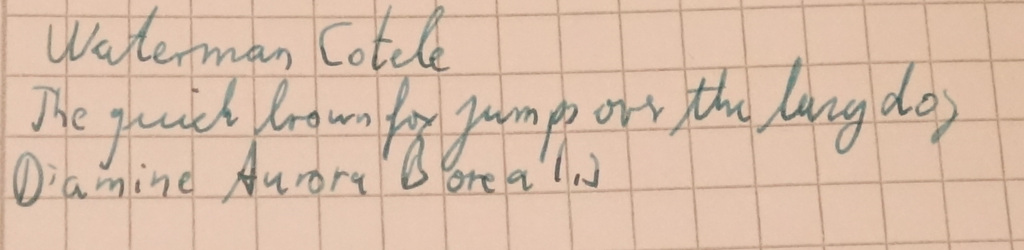 Waterman Cotele
The quick brown fox jumps over the lazy dog
Diamine Aurora Borealis